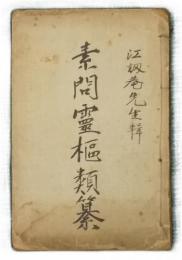 江訒菴先生輯
素問靈樞類纂